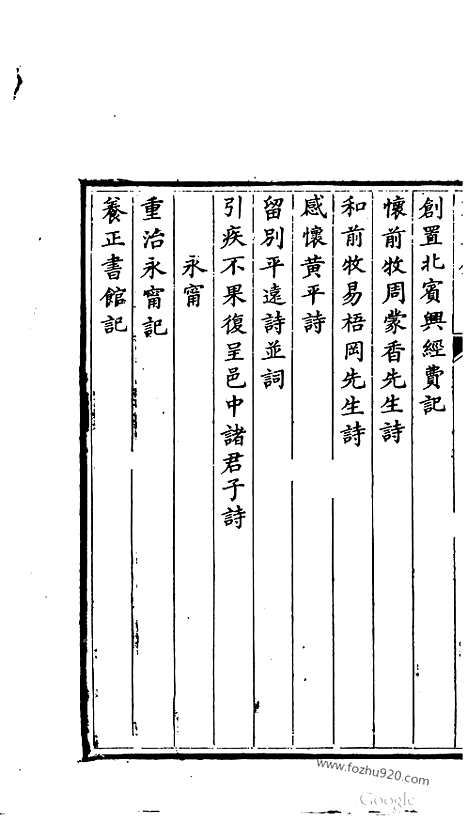 創置北賓興經費記
懷前牧周蒙香先生詩
和前牧易梧岡先生詩
感懷黃平詩
留別平遠詩並詞
引疾不果復呈邑中諸君子詩
永甯
重治永甯記
養正書館記
www.fozhu920.com
Google